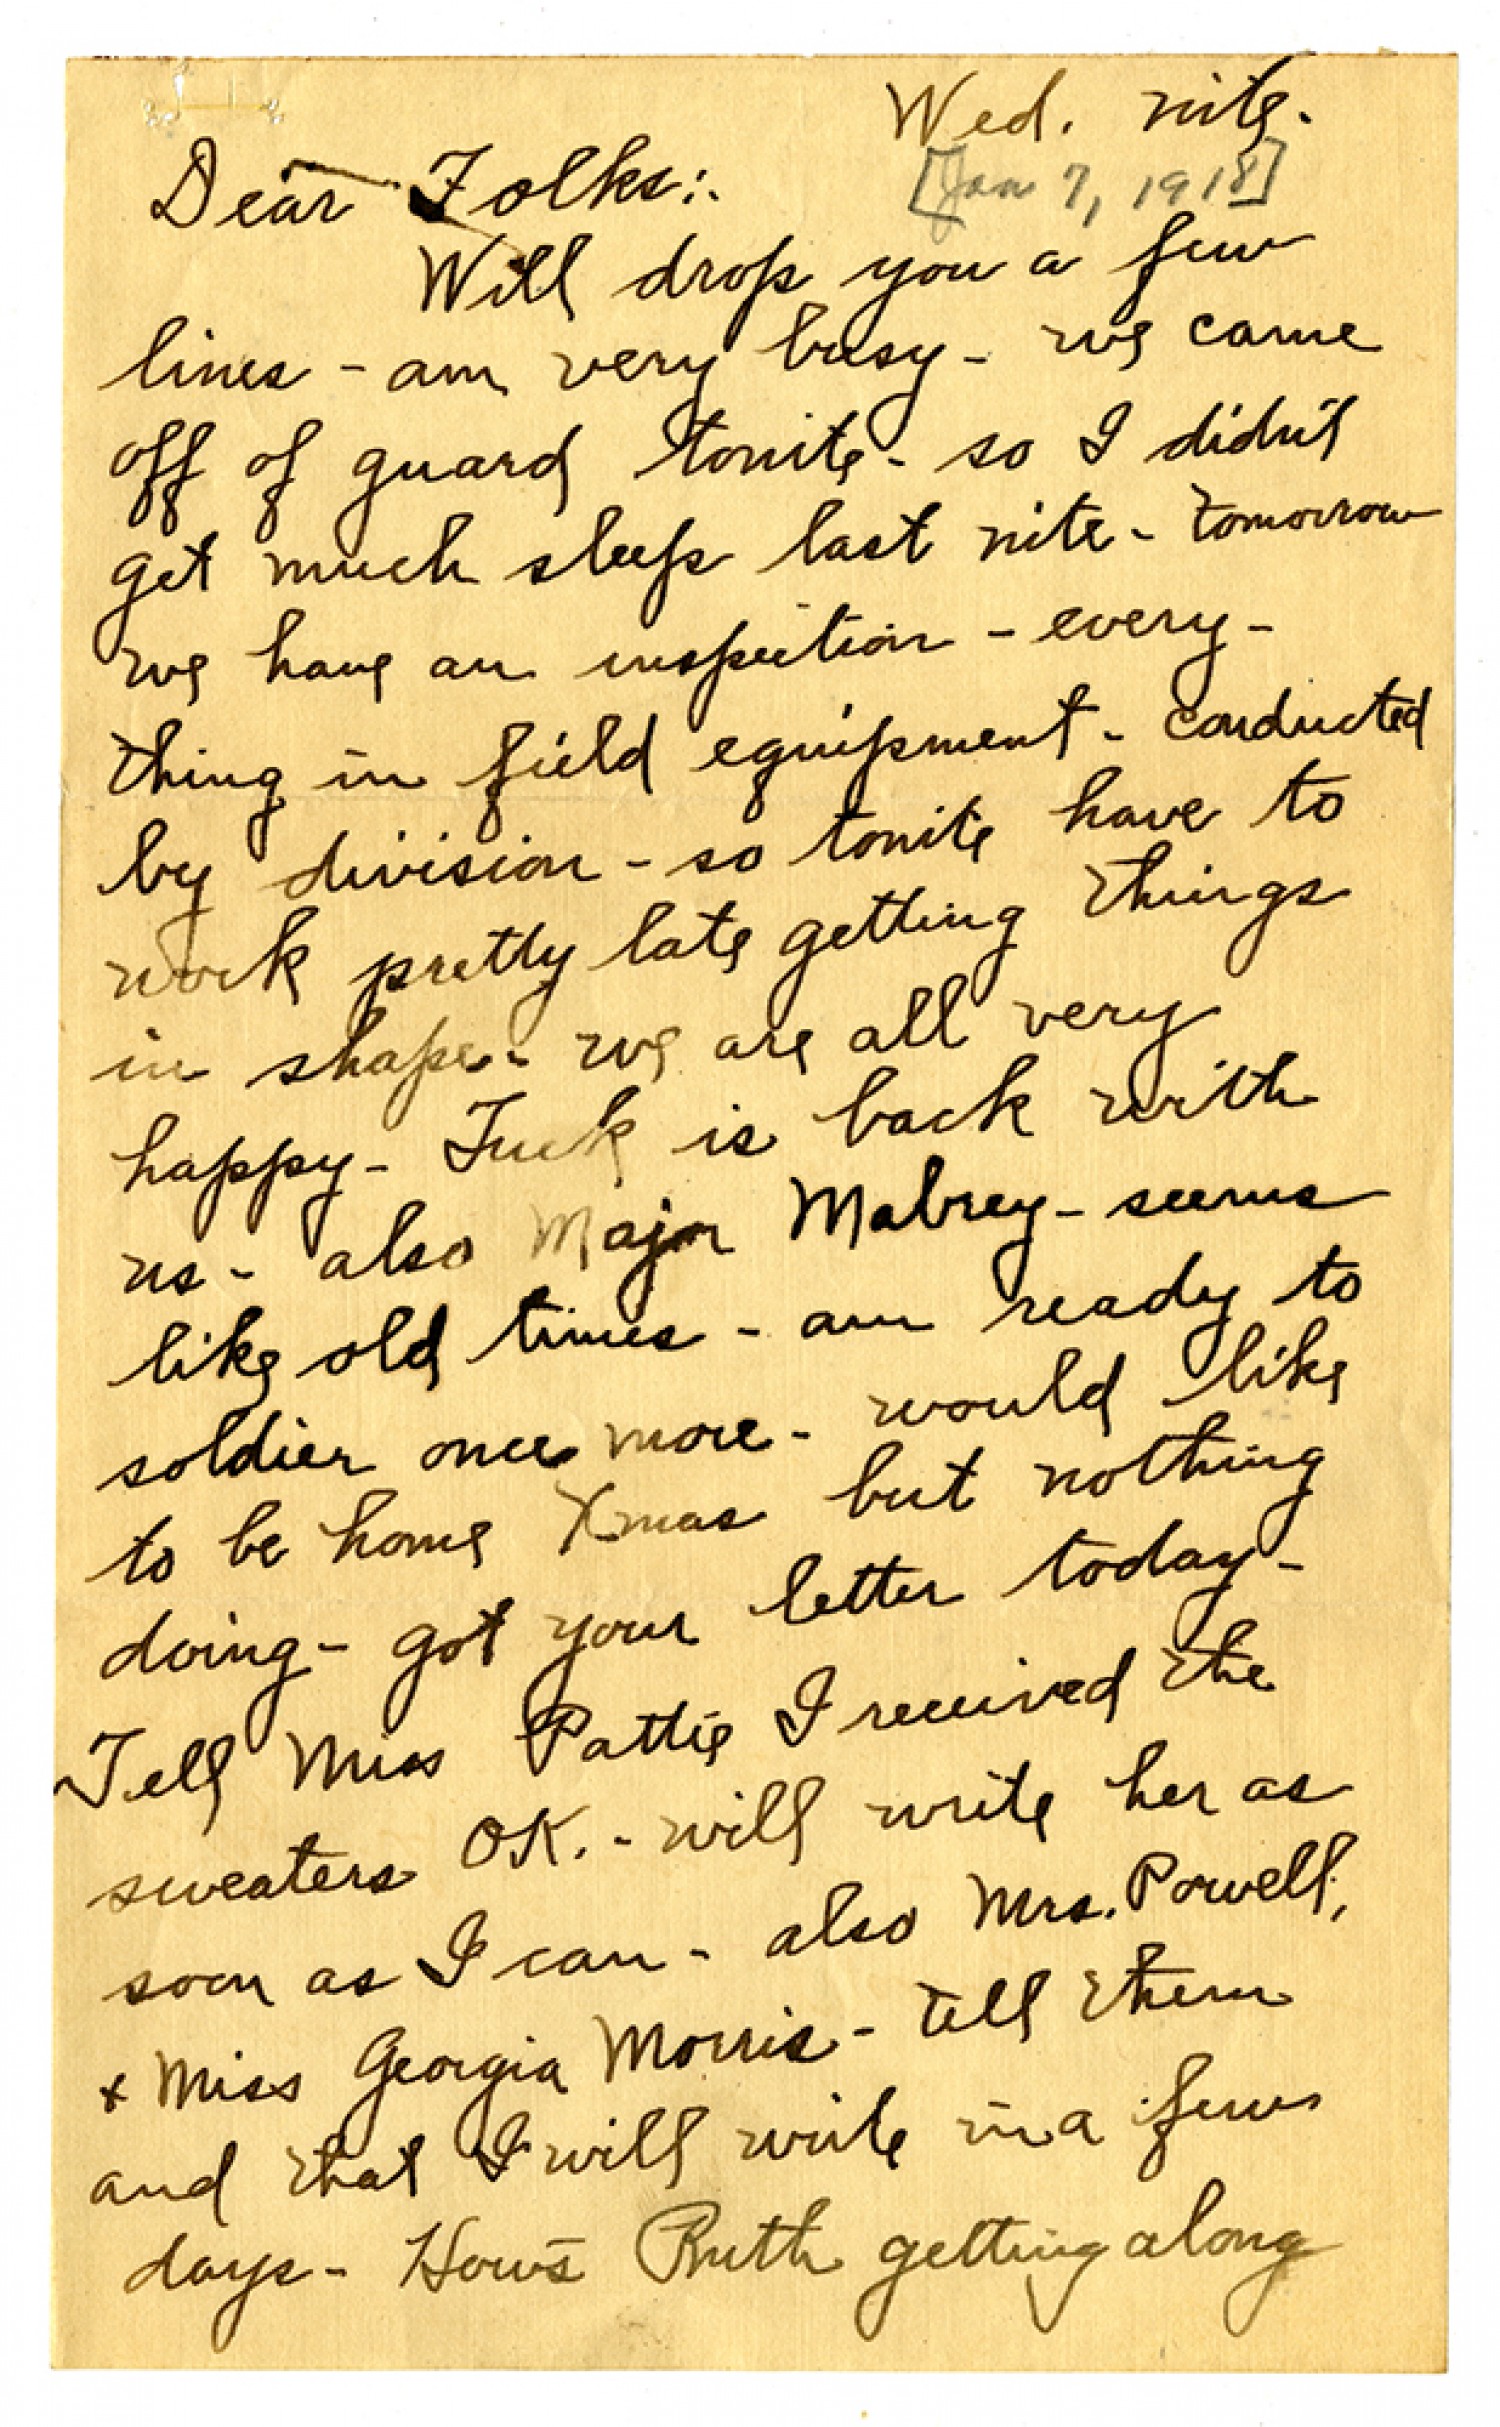 Wed. nite.
[Jan 7, 1918]
Dear Folks:.
Will drop you a few
lines - am very busy - we came
off of guard tonite - so I didn't
get much sleep last nite - tomorrow
we have an inspection - every-
thing in field equipment - conducted
by division - so tonite have to
work pretty late getting things
in shape - we are all very
happy - Tuck is back with
us - also Major Mabrey - seems
like old times - am ready to
soldier once more - would like
to be home Xmas but nothing
doing - got your letter today -
Tell Miss Pattie I received the
sweaters OK. - will write her as
soon as I can - also Mrs. Powell,
+ Miss Georgia Morris - tell them
and that I will write in a few
days - How's Ruth getting along